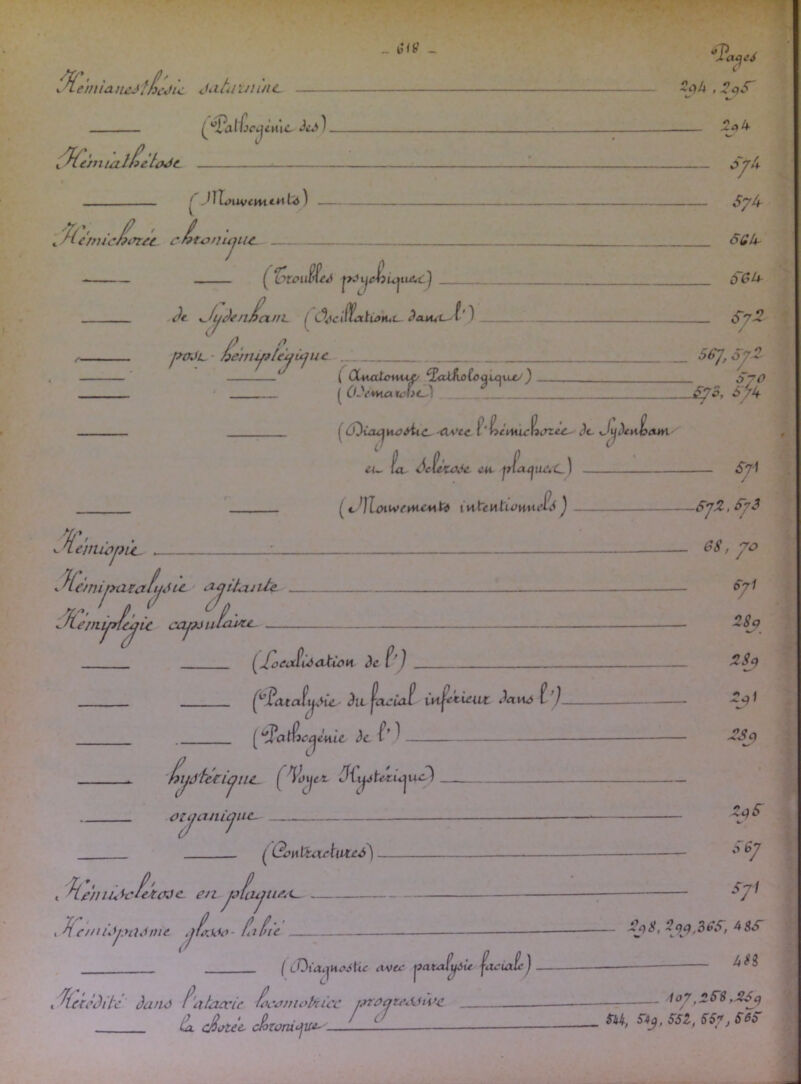 _ 618 _
Pages
Hémianesthésie saturnine 294, 295
(Pathogénie des) 294
Hémiathétose 574
(Mouvements) 574
Hémichorée chronique 564
(Troubles psychiques) 564
de Sydenham (Oscillations dans l') 572
post-hémiplégique 567, 572
(Anatomie Pathologique) 570
(Démarche) 573, 574
(Diagnostic avec l'hémichorée de Sydenham
et la Sclérose en plaques) 571
(Mouvements intentionnels) 572, 573
Hémiopie 68, 70
Hémiparalysie agitante 571
Hémiplégie capsulaire 289
(Localisation de l') 289
(Paralysie du facial inférieur dans l') 291
(Pathogénie de l') 289
hystérique (Voyez Hystérique)
organique 295
(Contractures) 567
Hémisclérose en plaques 571
Hémispasme glosso-labié 298, 299, 365, 485
(Diagnostic avec paralysie faciale) 488
Hérédité dans l'ataxie locomotrice progressive 107, 258, 259
la chorée chronique 544, 549, 552, 557, 565